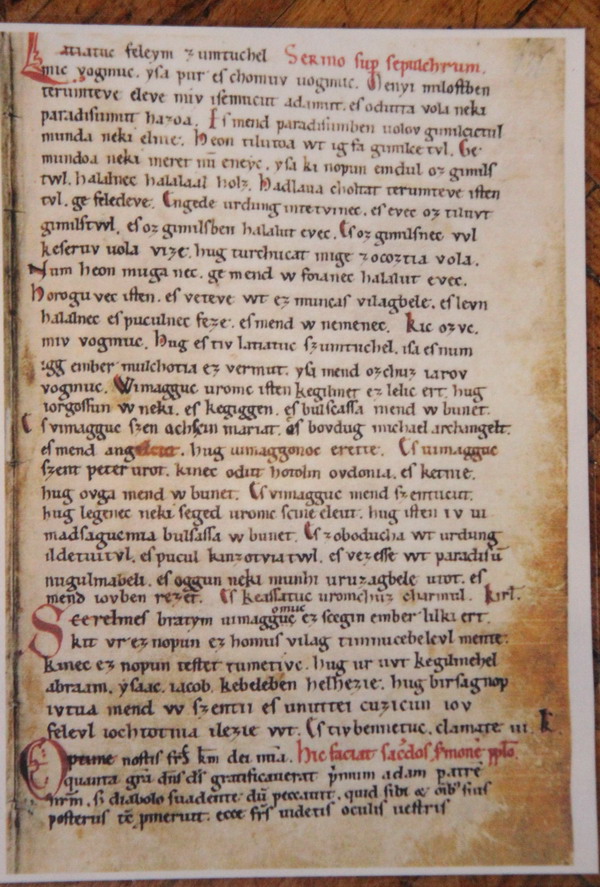 Latiatuc feleym zumtuchel Sermo sup sepulchrum.
mic vogmuc. ysa pur es chomuv uogmuc. Menyi milostben
terumteve eleve miv isemucut adamut. es odutta vola neki
paradisumut hazoa. Es mend paradisumben uolov gimilcictul
munda neki elnie. Heon tilutoa wt ig fa gimilcetvl. Ge
mundoa neki meret nū eneyc. ysa ki nopun emdul oz gimils
twl. halalnec halalaal holz. Hadlaua choltat terumteve isten
tvl. ge feledeve. Engede urdung intetvinec. es evec oz tiluvt
gimilstwl. es oz gimilsben halalut evec. Es oz gimilsnec vvl
keseruv uola vize. hug turchucat mige zocoztia vola.
Num heon muga nec. ge mend w foianec halalut evec.
Horogu vec isten. es veteve wt ez muncas vilagbele. es levn
halalnec es puculnec feze. es mend w nemenec. Kic ozvc.
miv vogmuc. Hug es tiv latiatuc szumtuchel. isa es num
igg ember mulchotia ez vermut. ysa mend ozchuz iarov
vogmuc. Wimagguc uromc isten kegilmet ez lelic ert. hug
iorgossun w neki. es kegiggen. es bulsassa mend w bunet.
Es vimagguc szen achscin mariat. es bovdug michael archangelt.
es mend angelcut. hug uimaggonoc erette. Es uimagguc
szent peter urot. kinec odut hotolm ovdonia. es ketnie.
hug ovga mend w bunet. Es vimagguc mend szentucut.
hug legenec neki seged uromc scine eleut. hug isten iv ui
madsagucmia bulsassa w bunet. Es zoboducha wt urdung
ildetuitvl. es pucul kinzotviatwl. es vezesse wt paradisū
nugulmabeli. es oggun neki munhi uruzagbele utot. es
mend iovben rezet. Es keassatuc uromchuz charmul. Kirl.
Scerelmes bratym uimagguc omuc ez scegin ember lilki ert.
kit vr ez nopun ez homus vilag timnucebelevl mente.
kinec ez nopun testet tumetivc. hug ur uvt kegilmehel
abraam. ysaac. iacob. kebeleben helhezie. hug birsagnop
ivtua mend w szentii es unuttei cuzicun iov
felevl iochtotnia ilezie wt. Es tivbennetuc. clamate iii. k.
Optime nostis frs̄ km̄ dei nr̄a. hic faciat sac̄dos s̄monē pp̄lo.
quanta grā dn̄s ds̄ gratificauerat p̄mum adam patrē
nr̄m. si diabolo suadente dū peccauit. quid sibi &amp; oīb' suis
posteris tē pmeruit. ecce frs̄ videtis oculis vestris